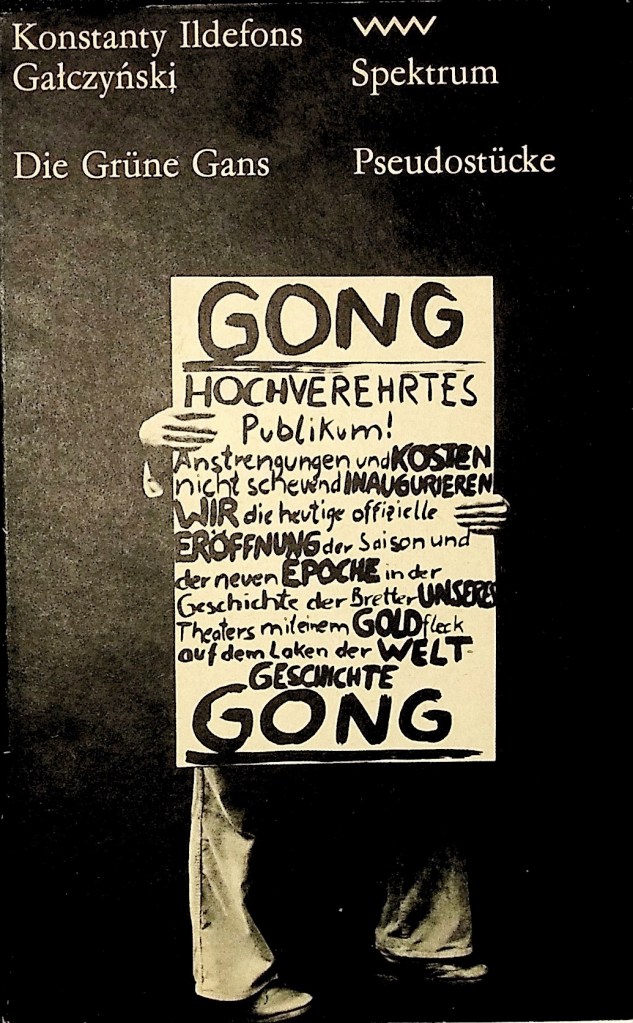 Konstanty Ildefons
Gałczyński
Spektrum
Die Grüne Gans
Pseudostücke
GONG
HOCHVEREHRTES
Publikum!
Anstrengungen und KOSTEN
nicht scheuend INAUGURIEREN
WIR die heutige offizielle
ERÖFFNUNG der Saison und
der neuen EPOCHE in der
Geschichte der Bretter UNSERES
Theaters mit einem GOLDfleck
auf dem Laken der WELT-
GESCHICHTE
GONG